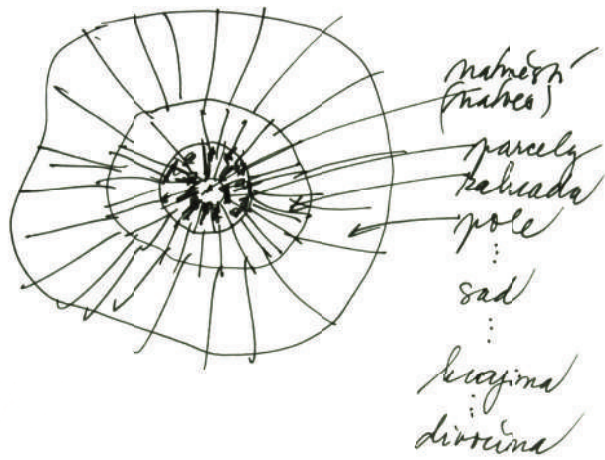 náměstí
(náves)
parcely
zahrada
pole
sad
krajina
divočina